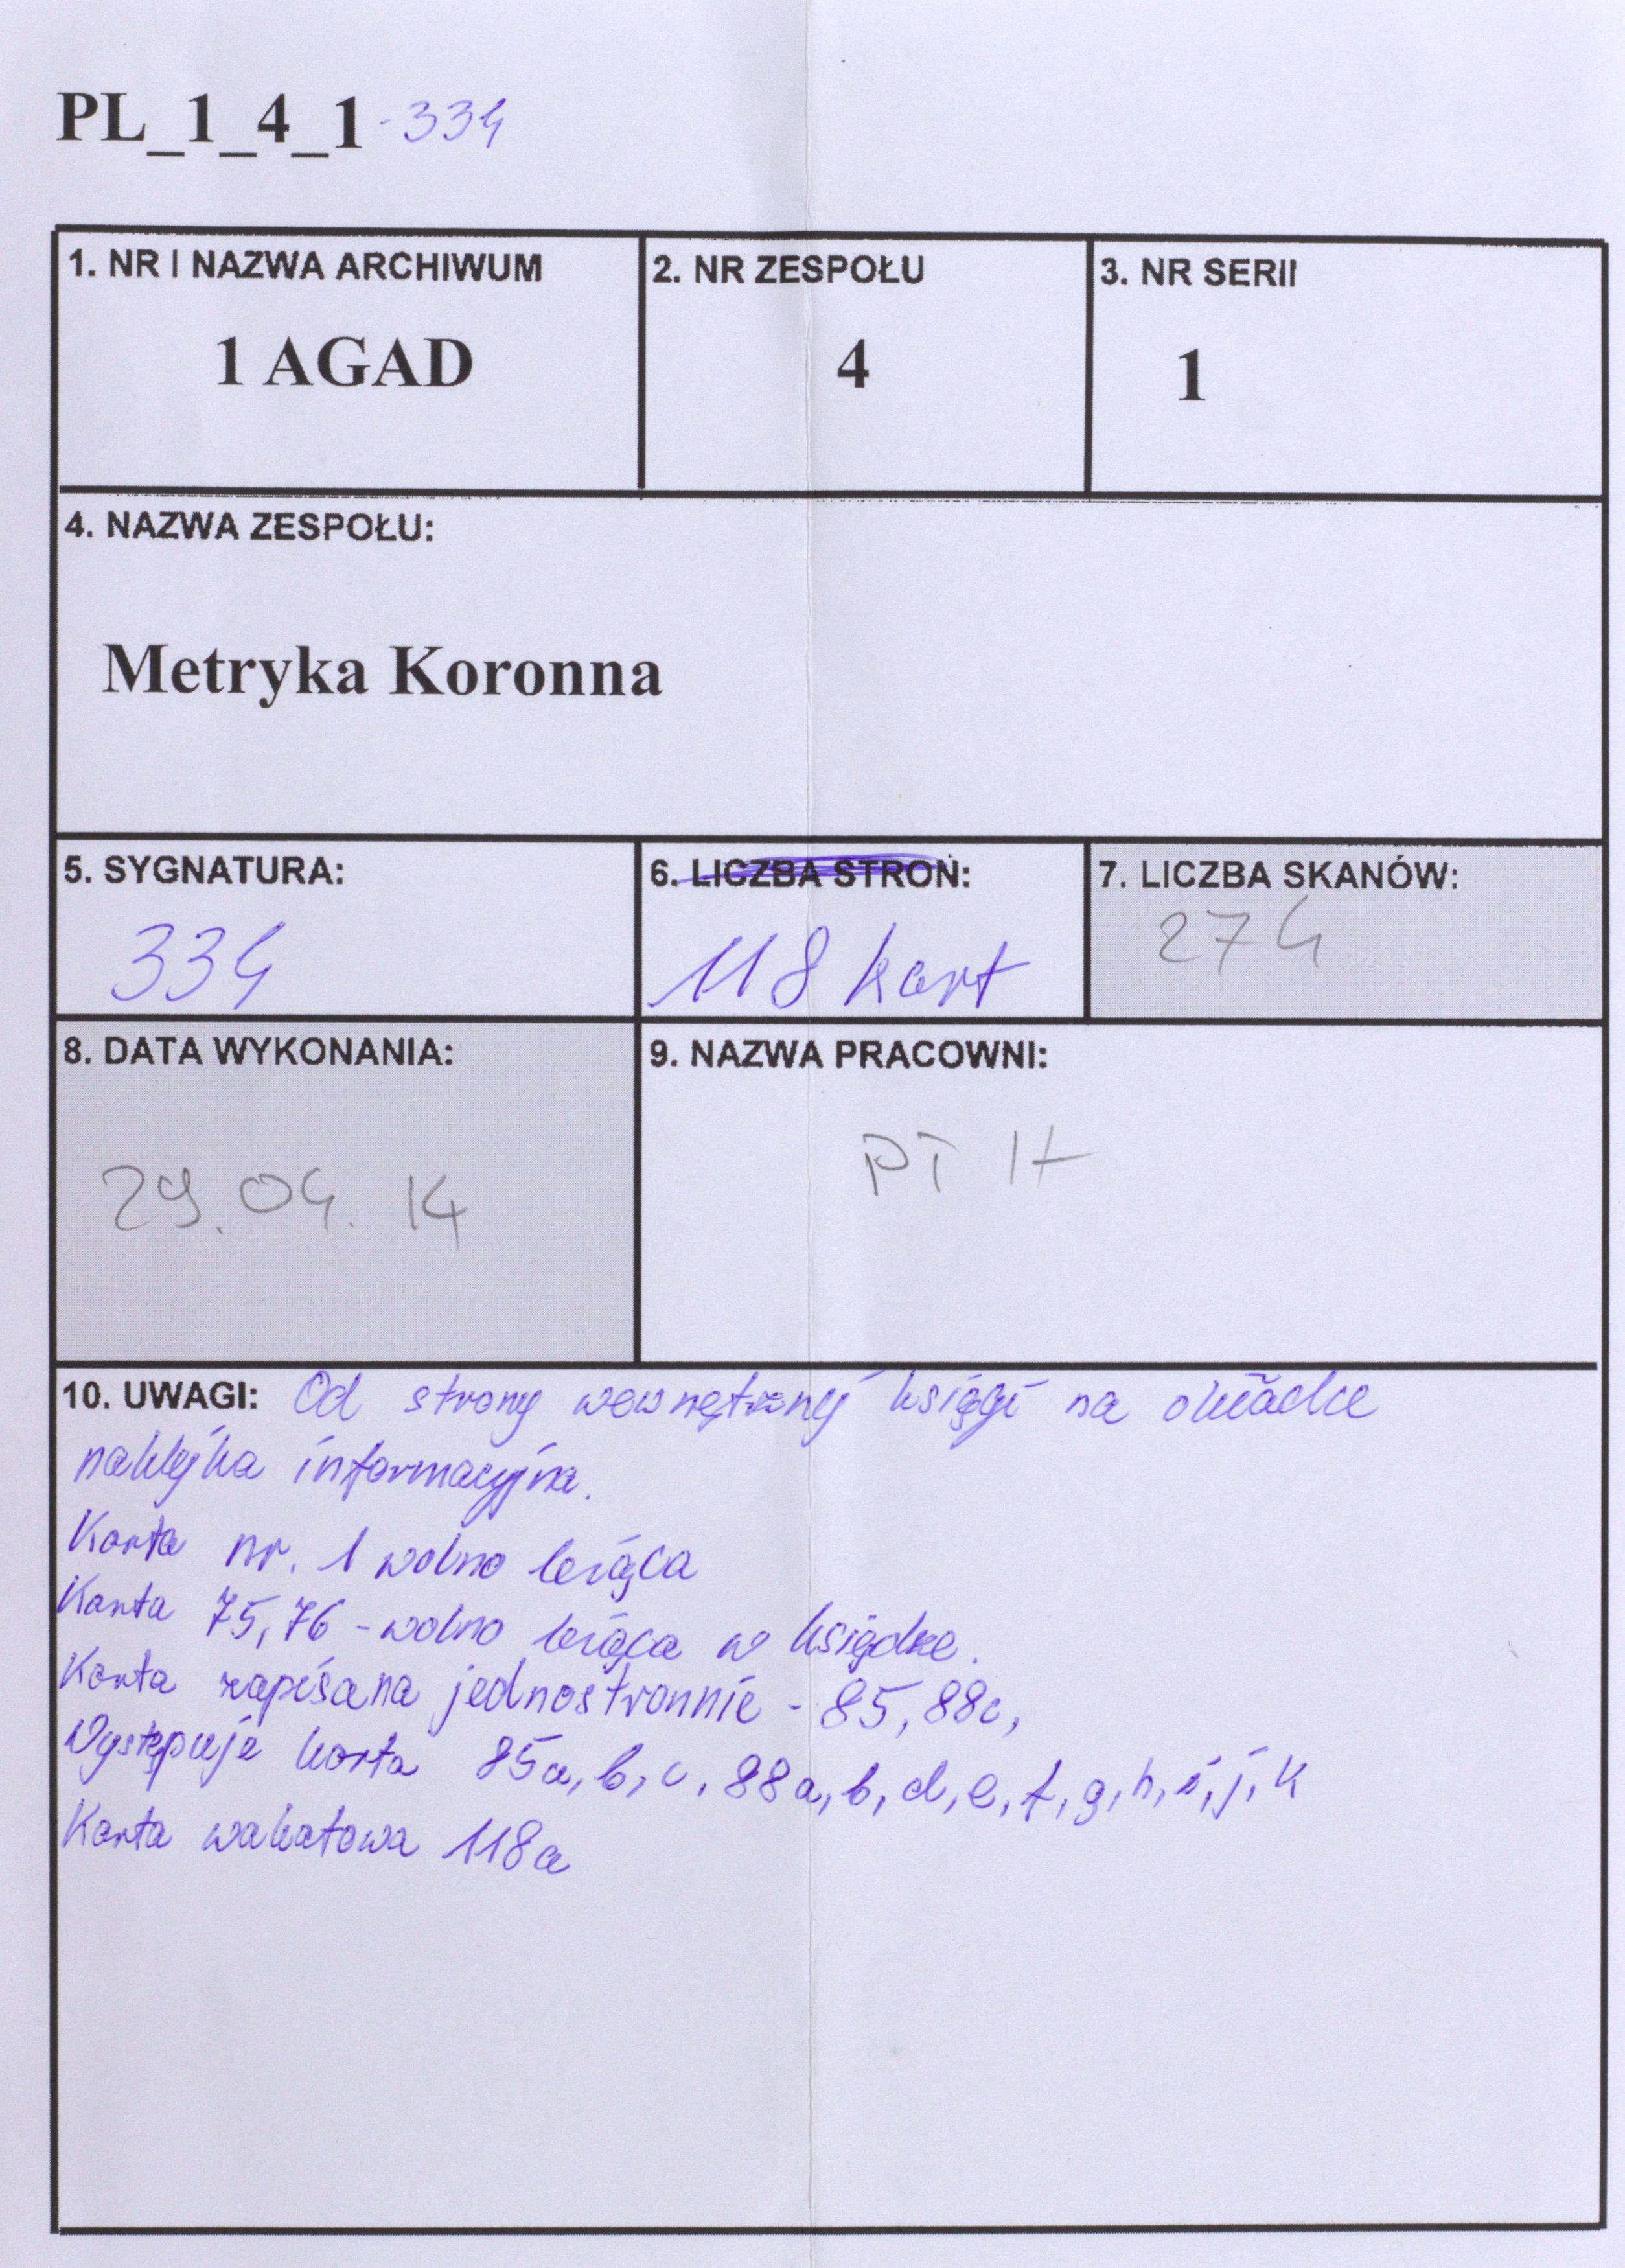 PL_1_4_1-334
1. NR I NAZWA ARCHIWUM
1 AGAD
2. NR ZESPOŁU
4
3. NR SERII
1
4. NAZWA ZESPOŁU:
Metryka Koronna
5. SYGNATURA:
334
6. LICZBA STRON:
118 kart
7. LICZBA SKANÓW:
274
8. DATA WYKONANIA:
29.04.14
9. NAZWA PRACOWNI:
PT H
10. UWAGI: Od strony wewnętrznej księgi na okładce
naklejka informacyjna.
Karta nr. 1 wolno leżąca
Karta 75, 76 - wolno leżąca w księdze.
Karta zapisana jednostronnie - 85, 88c,
Występuje karta 85a, b, c, 88a, b, d, e, f, g, h, i, j, k
Karta wakatowa 118a